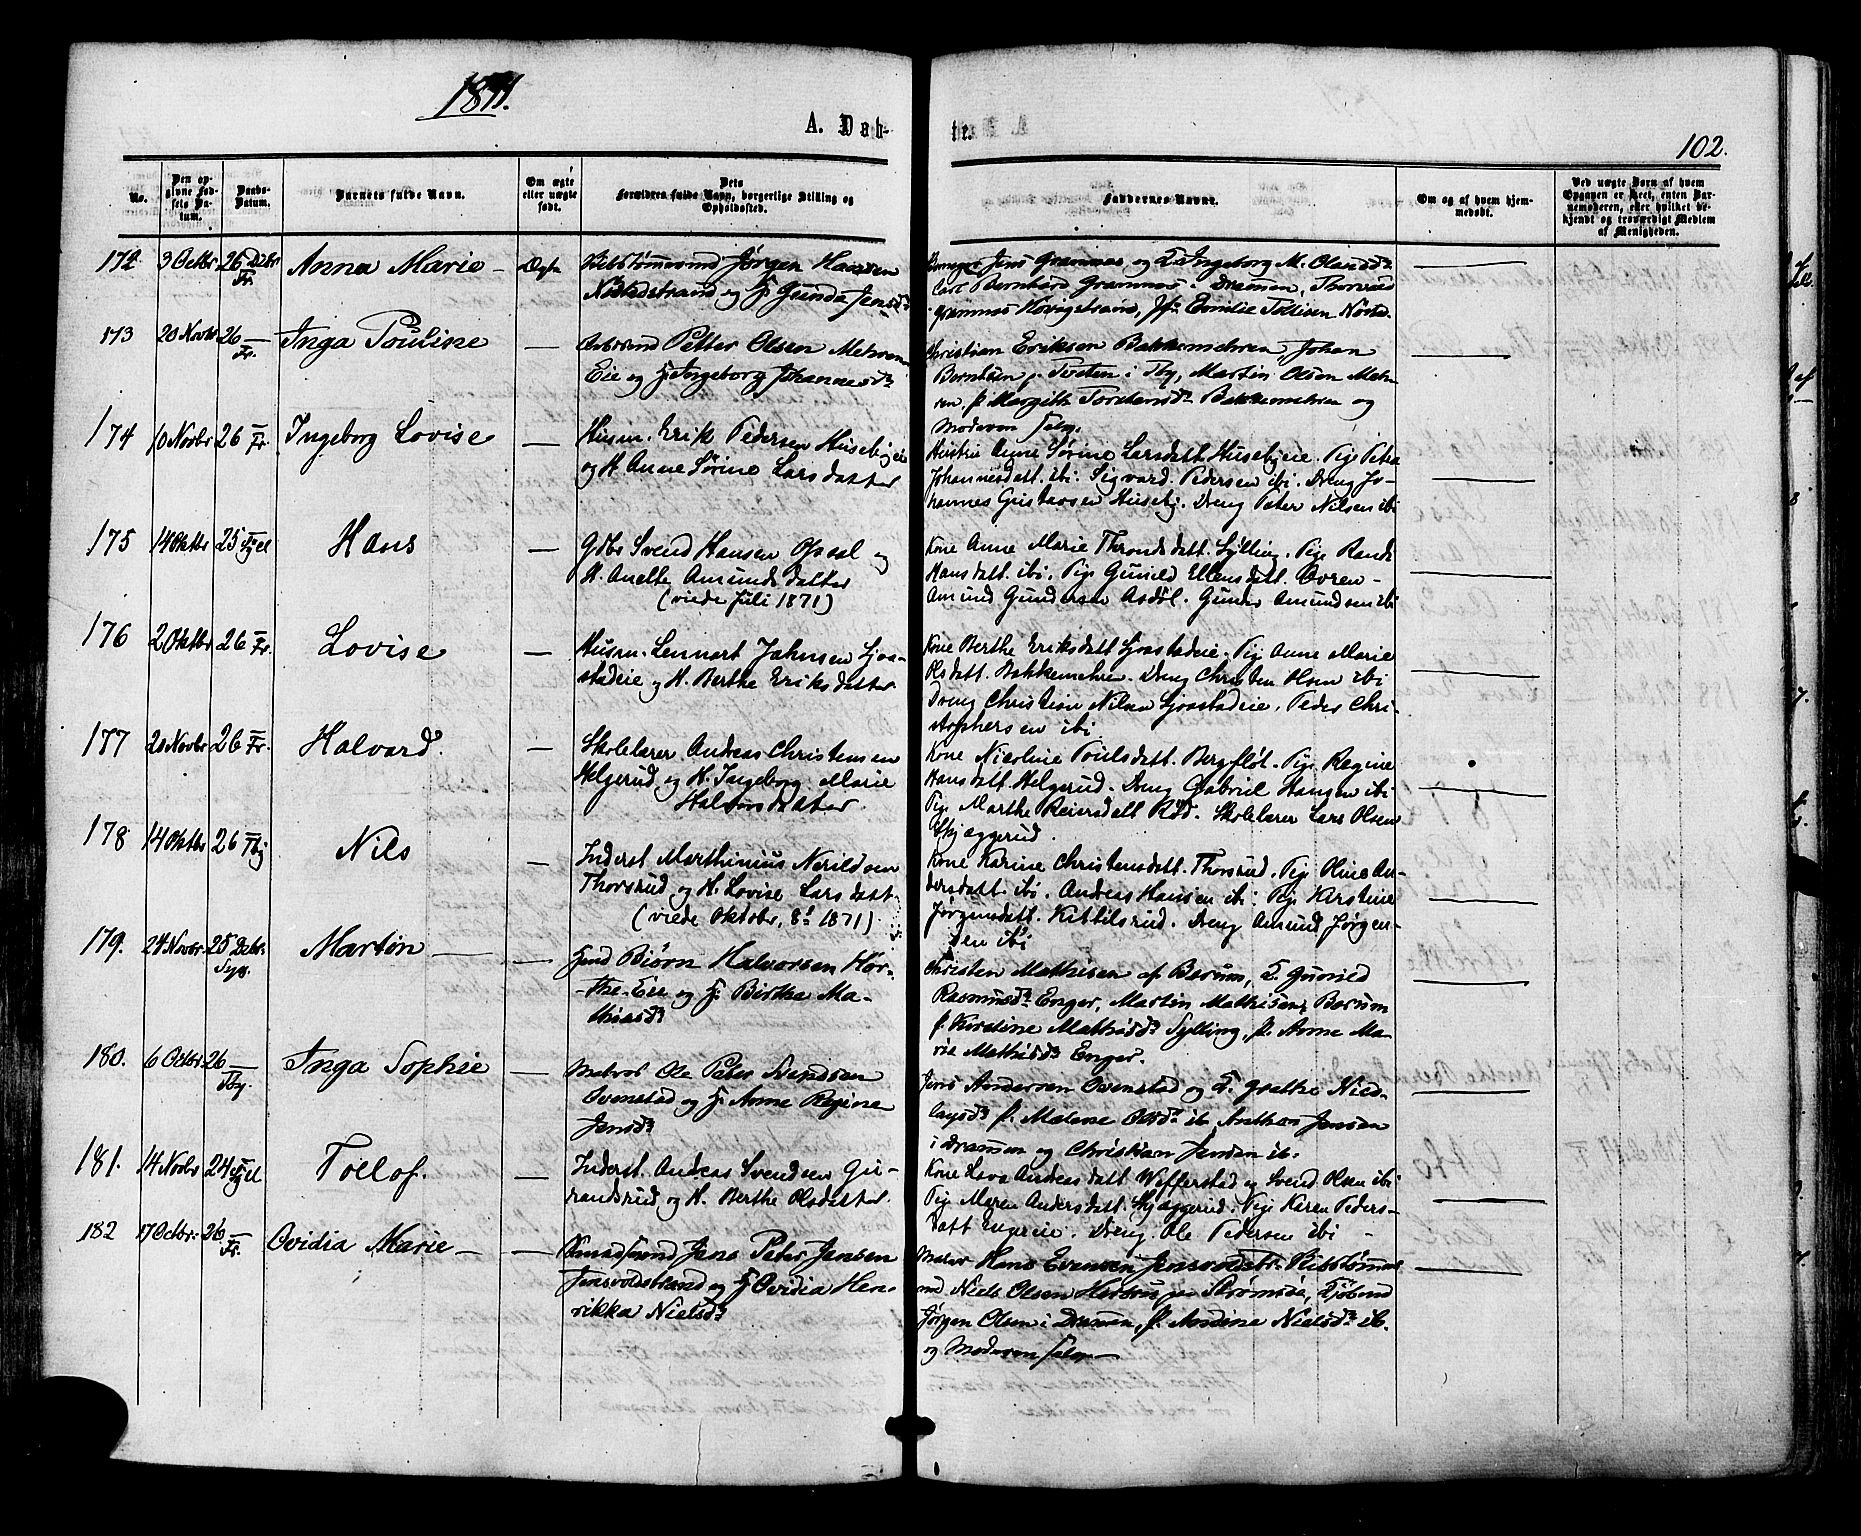 1871.
A. Døb-
te.
102.
No.
Den op-
givne Fød-
sels Da-
tum.
Daabs-
Datum.
Barnets fulde Navn.
Om ægte
eller uægte
født.
Dets
Forældres fulde Navn, borgerlige Stilling og
Opholdssted.
Faddernes Navne.
Om og af hvem hjem-
medøbt.
Ved uægte Børn af hvem
Opgaven er skeet, enten Bar-
nemoderen, eller hvilket be-
kjendt og troværdigt Medlem
af Menigheden.
172 3 Octbr 26 Dcbr Fr. Anna Marie — Ægte
Jørgen Hansen
Nøstedstrand og H. Gunda Jensd.
Jens Grammes og Ingeborg M. Olsd.
Carl Bernhard Grammes i Drammen, Thorvald
Grammes Emilie Tollisen Nøste
173 20 Novbr 26 — Fr. Inga Pouline —
Petter Olsen Mehren
Eie og H. Ingeborg Johannesd.
Christian Eriksen Bakkemehren, Johan
Berntsen Tveten i Thy, Martin Olsen Meh-
ren. p. Margith Torstensd. Bakkemehren og
Moderen selv.
174 10 Novbr 26 — Fr. Ingeborg Lovise —
Husm. Erik Pedersen Husebyeie
og H. Anne Sørine Larsdatter
Hustru Anne Sørine Larsdatt. Husebyeie. Pige Petra
Johannesdatt. ibi. Sigvard Pedersen ibi. Dreng Jo-
hannes Gustavsen Huseby. Dreng Peter Nilsen ibi
175 14 Oktbr 25 Sjel Hans —
Gdbr Svend Hansen Opsal og
H. Anette Amundsdatter
(viede Juli 1871)
Kone Anne Marie Throndsdatt. Sylling. Pige Randi
Hansdatt. ibi. Pige Gunild Ellensdatt. Ovren —
Amund Gundersen Asdøl. Gunder Amundsen ibi
176 2 Oktbr 26 — Fr. Lovise —
Husm. Lennart Johnsen Sjaa-
stadeie og H. Berthe Eriksdatter
Kone Berthe Eriksdatt Sjaastadeie. Pige Anne Marie
Olsdatt. Bakkemehren. Dreng Christen Olsen ibi
Dreng Christian Nilsen Sjaastadeie. Peder Chri-
stophersen ibi.
177 20 Novbr 26 — Fr. Halvard. —
Skolelærer Andreas Christensen
Helgerud og H. Ingeborg Marie
Halvorsdatter.
Kone Nicoline Poulsdatt. Bergfløt. Pige Regine
Hansdatt. Helgerud. Dreng Gabriel Hansen ibi
Pige Marthe Reiersdatt Rød. Skolelærer Lars Olsen
Skjæggerud.
178 14 Oktbr 26 — Thj Nils —
Inderst Marthinius Nerildsen
Thorsrud og H. Lovise Larsdatt
(viede Oktobr. 8. 1871)
Kone Karine Christensdatt. Thorsrud. Pige Oline An-
dersdatt. ibi. Andreas Hansen ibi. Pige Kirstine
Jørgensdatt. Kittilsrud. Dreng Amund Jørgen-
sen ibi
179. 24 Novbr 25 Debr. Syg. Martin — —
Bjørn Halvorsen Hør-
the-Eie og H. Birthe Ma-
thiasd.
Christen Mathisen af Bærum, Gunild
Rasmusd. Enger, Martin Mathisen, Bærum
p. Kirstine Mathisd. Sylling, p. Anne Ma-
rie Mathisd. Enger.
180. 6 Octbr 26 — Thy. Inga Sophie —
Matros Ole Peter Svendsen
Ovenstad og H. Anne Regine
Jensd.
Jens Andersen Ovenstad og Grethe Nico-
laysd. p. Malene Olsd. ib. Anthon Jensen
i Drammen og Christian Jensen ib.
181. 14 Novbr 24 Sjel Tollof. —
Inderst. Andreas Svendsen Gu-
randsrud og H. Berthe Olsdatter.
Kone Eva Andreasdatt Wefferstad og Svend Olsen ibi
Pige Maren Andersdatt. Skjæggerud. Pige Karen Peders-
datt Engereie. Dreng Ole Pedersen ibi —
182 17 Octbr. 26 — Fr. Ovidia Marie — —
Jens Peter Jensen
Jensvoldstrand og H. Ovidia Hen-
rikka Nielsd.
Hans Evensen Jensvoldstr.
Niels Olsen Strømsø,
Jørgen Olsen i Drammen, p. Andine Nielsd. ib.
og Moderen selv —